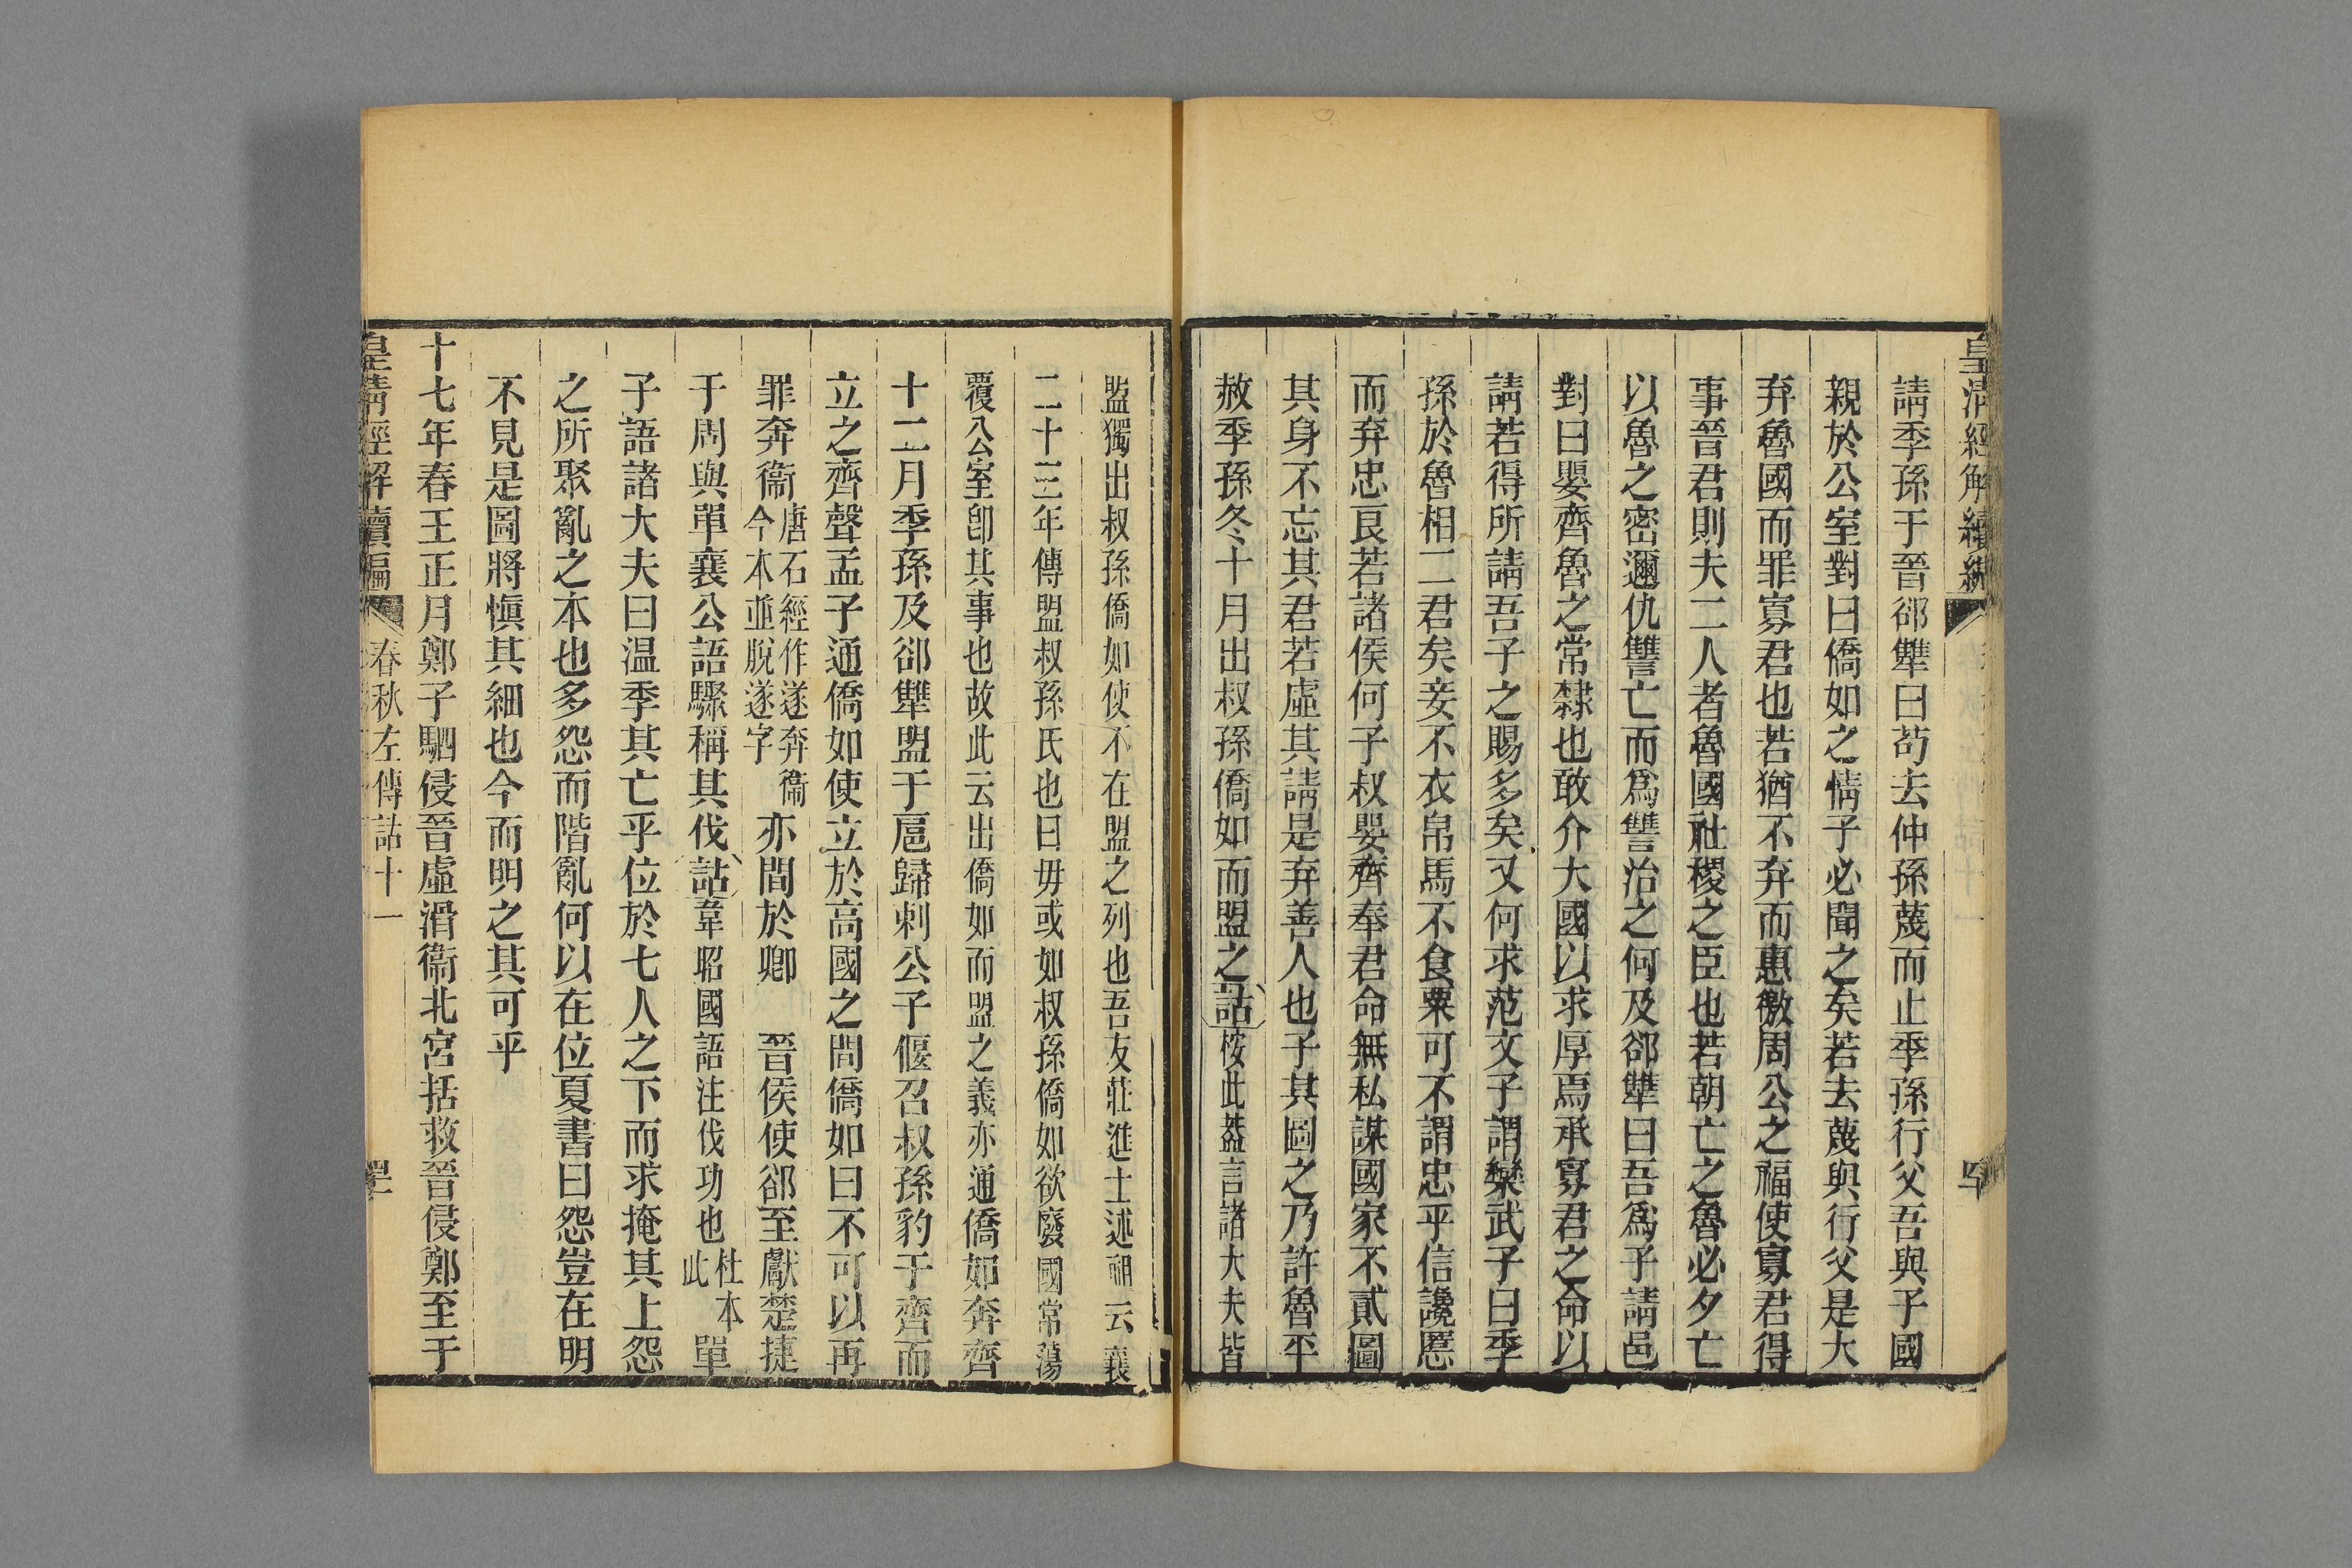 皇清經解續編
請季孫于晉郤犨曰苟去仲孫蔑而止季孫行父吾與子國
親於公室對曰僑如之情子必聞之矣若去蔑與行父是大
弃魯國而罪寡君也若猶不弃而惠徼周公之福使寡君得
事晉君則夫二人者魯國社稷之臣也若朝亡之魯必夕亡
以魯之密邇仇讐亡而爲讐治之何及郤犨曰吾爲子請邑
對曰嬰齊魯之常隸也敢介大國以求厚焉承寡君之命以
請若得所請吾子之賜多矣又何求范文子謂欒武子曰季
孫於魯相二君矣妾不衣帛馬不食粟可不謂忠乎信讒慝
而弃忠良若諸侯何子叔嬰齊奉君命無私謀國家不貳圖
其身不忘其君若虛其請是弃善人也子其圖之乃許魯平
赦季孫冬十月出叔孫僑如而盟之詁桉此葢言諸大夫皆
盟獨出叔孫僑如使不在盟之列也吾友莊進士述祖云襄
二十三年傳盟叔孫氏也曰毋或如叔孫僑如欲廢國常蕩
覆公室卽其事也故此云出僑如而盟之義亦通僑如奔齊
十二月季孫及郤犨盟于扈歸刺公子偃召叔孫豹于齊而
立之齊聲孟子通僑如使立於高國之閒僑如曰不可以再
罪奔衞唐石經作遂奔衞今本並脫遂字亦閒於卿　晉侯使郤至獻楚捷
于周與單襄公語驟稱其伐詁韋昭國語注伐功也杜本此單
子語諸大夫曰温季其亡乎位於七人之下而求掩其上怨
之所聚亂之本也多怨而階亂何以在位夏書曰怨豈在明
不見是圖將愼其細也今而明之其可乎
十七年春王正月鄭子駟侵晉虛滑衞北宮括救晉侵鄭至于
皇清經解續編　春秋左傳詁十一